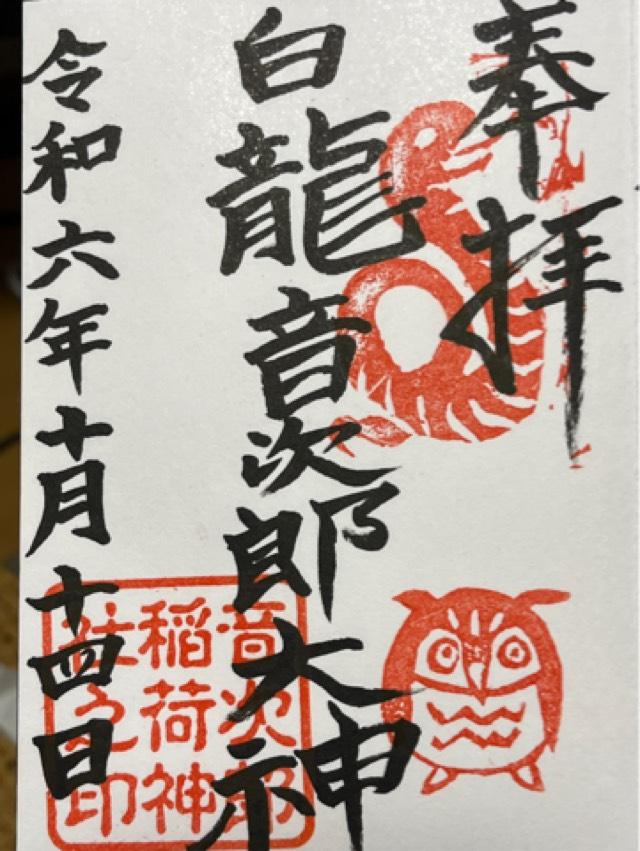 奉拝
白龍音次郎大神
令和六年十月十四日
音次郎
稲荷神
社之印